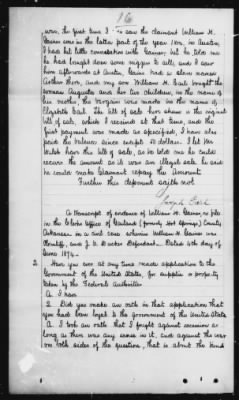 16
war, the first time I saw the claimant William H.
Gaines was in the latter part of the year 1864, in Austin,
I had but little conversation with Gaines, but he told me
he had brought down some niggers to sell, and I saw
him afterwards at Austin, Gaines had a slave named
Arthur there, and my son William H. Earl bought the
woman Augusta and her two children, in the name of
his mother, the bargain was made in the name of
Elizabeth Earl. The bill of sale here shown is the original
bill of sale, which I received at that time, and the
first payment was made as specified, I have also
paid the balance since except dollars. I let Mr.
have this bill of sale, as he told me he could
recover the amount as it was an illegal sale he said
he could make claimant repay the amount.
Further this deponent saith not.
Joseph Earl
A Transcript of evidence of William H. Gaines, on file
in the Clerks Office of Garland (formerly Hot Springs) County
Arkansas in a civil case wherein William H. Gaines was
Plaintiff, and J. D. Defendant. Dated 4th day of
June 1874.
2. Have you ever at any time made application to the
Government of the United States, for supplies or property
taken by the Federal Authorities
A. I have
2 Did you make an oath in that application that
you had been loyal to the government of the United States
A. I took an oath that I fought against secession as
long as there was any sense in it, and against the war
on both sides of the question, that is about the kind